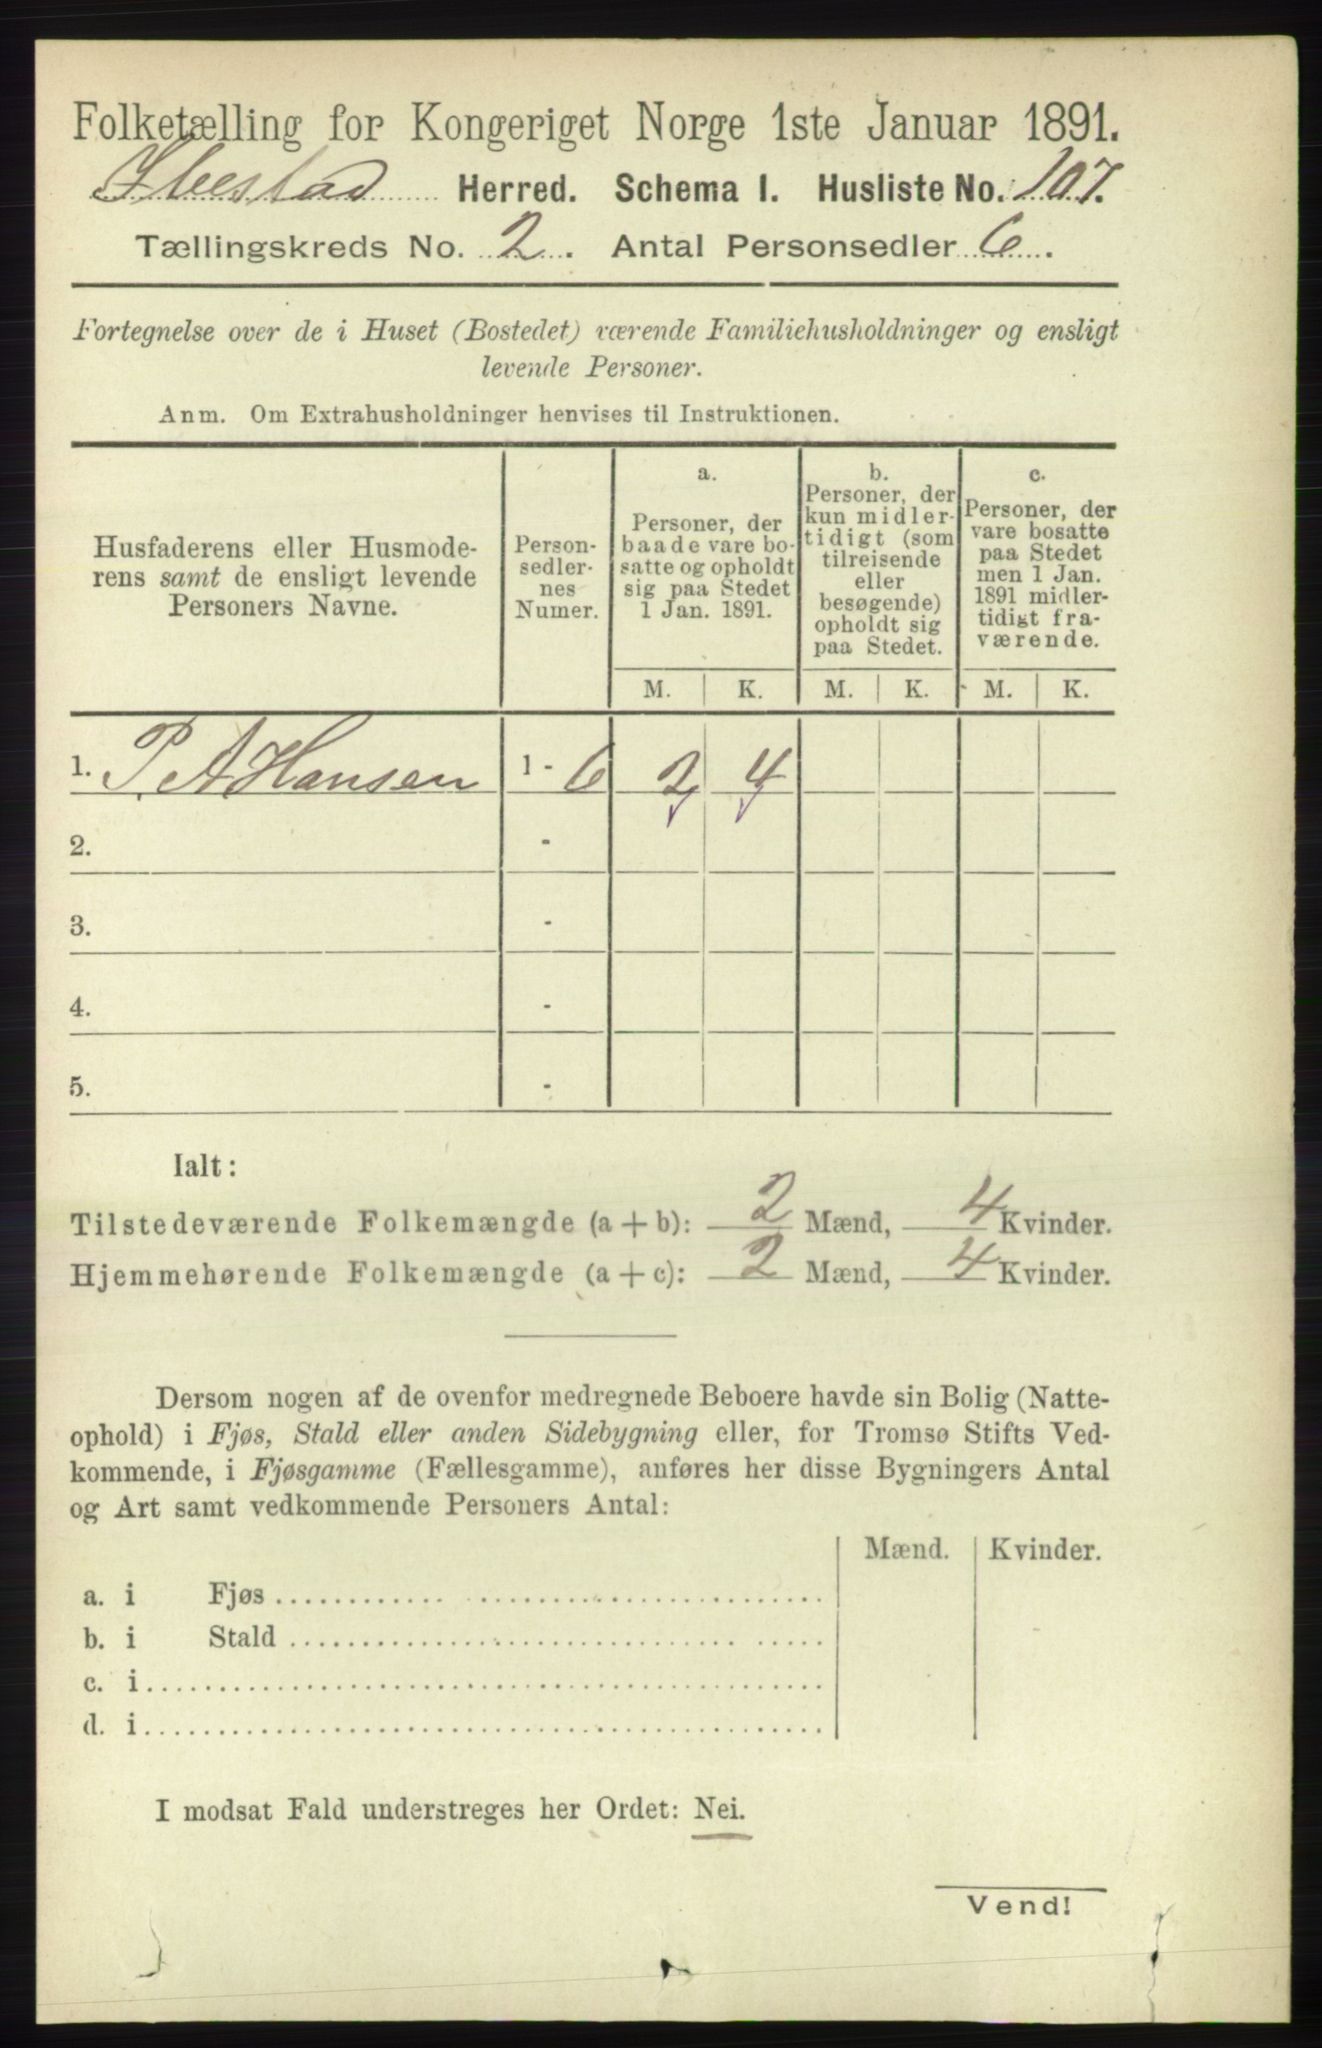 Folketælling for Kongeriget Norge 1ste Januar 1891.
Ibestad Herred. Schema I. Husliste No. 107.
Tællingskreds No. 2. Antal Personsedler 6.
Fortegnelse over de i Huset (Bostedet) værende Familiehusholdninger og ensligt
levende Personer.
Anm. Om Extrahusholdninger henvises til Instruktionen.
Husfaderens eller Husmode-
rens samt de ensligt levende
Personers Navne.
Person-
sedler-
nes
Numer.
a.
Personer, der
baade vare bo-
satte og opholdt
sig paa Stedet
1 Jan. 1891.
b.
Personer, der
kun midler-
tidigt (som
tilreisende
eller
besøgende)
opholdt sig
paa Stedet.
c.
Personer, der
vare bosatte
paa Stedet
men 1 Jan.
1891 midler-
tidigt fra-
værende.
M. K. M. K. M. K.
1. P. A Hansen 1 - 6 2 4
2. -
3. -
4. -
5. -
Ialt:
Tilstedeværende Folkemængde (a + b): 2 Mænd, 4 Kvinder.
Hjemmehørende Folkemængde (a + c): 2 Mænd, 4 Kvinder.
Dersom nogen af de ovenfor medregnede Beboere havde sin Bolig (Natte-
ophold) i Fjøs, Stald eller anden Sidebygning eller, for Tromsø Stifts Ved-
kommende, i Fjøsgamme (Fællesgamme), anføres her disse Bygningers Antal
og Art samt vedkommende Personers Antal:
Mænd. Kvinder.
a. i Fjøs
b. i Stald
c. i
d. i
I modsat Fald understreges her Ordet: Nei.
Vend!